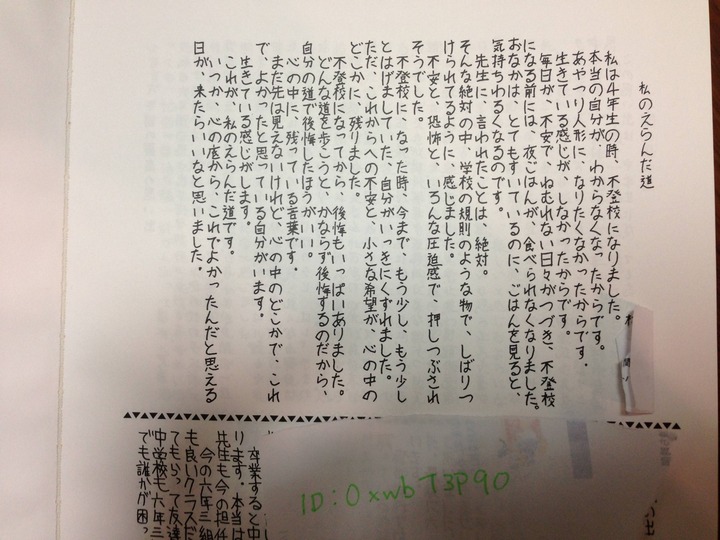 私のえらんだ道
私は4年生の時、不登校になりました。
本当の自分が、わからなくなったからです。
あやつり人形に、なりたくなかったからです。
生きている感じが、しなかったからです。
毎日が、不安で、ねむれない日々がつづき、不登校
になる前には、夜ごはんが、食べられなくなりました。
おなかは、とてもすいているのに、ごはんを見ると、
気持ちわるくなるのです。
先生に、言われたことは、絶対。
そんな絶対の中、学校の規則のような物で、しばりつ
けられてるように、感じました。
不安と、恐怖と、いろんな圧迫感で、押しつぶされ
そうでした。
不登校に、なった時、今まで、もう少し、もう少し
とはげましていた、自分がいっきにくずれました。
ただ、これからへの不安と、小さな希望が、心の中の
どこかに、残りました。
不登校になってから、後悔もいっぱいありました。
どんな道を歩こうと、かならず後悔するのだから、
自分の道で後悔したほうがいい。
心の中に、残っている言葉です。
まだ先は見えないけれど、心の中のどこかで、これ
で、よかったと思っている自分がいます。
生きている感じがします。
これが、私のえらんだ道です。
いつか、心の底から、これでよかったんだと思える
日が、来たらいいなと思いました。
卒業すると中
ります。本当は
共生も今の担任
今の六年三組
も良いクラスだ
てもらって友達
中学校も六年三
でも誰かが困っ
ID:0xwbT3P90